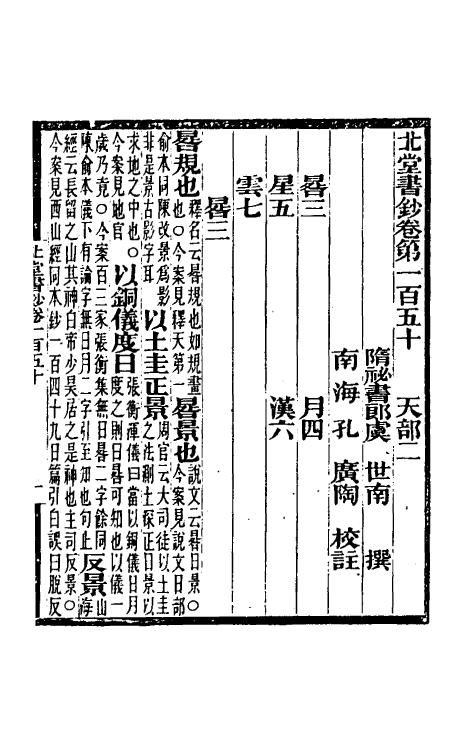 北堂書鈔卷第一百五十 天部二
隋祕書郎虞 世南 撰
南海孔 廣陶 校註
晷三 月四
星五 漢六
雲七
晷三
晷規也釋名云晷規也如規畫也○今案見釋天第一晷景也說文云晷日景○今案見說文日部
俞本同陳改景爲影非是景古影字耳以土圭正景周官云大司徒以土圭之法測土深正日景以
求地之中也○今案見地官以銅儀度日張衡渾儀曰當以銅儀日月度之則日晷可知也以儀一
歲乃竟○今案百三家張衡集無日晷二字餘同陳俞本儀下有論字無日月二字引至知也句止反景山海
經云長留之山其神白帝少昊居之是神也主司反景○今案見西山經同本鈔一百四十九日篇引白誤曰脫反
北堂書鈔卷一百五十 一